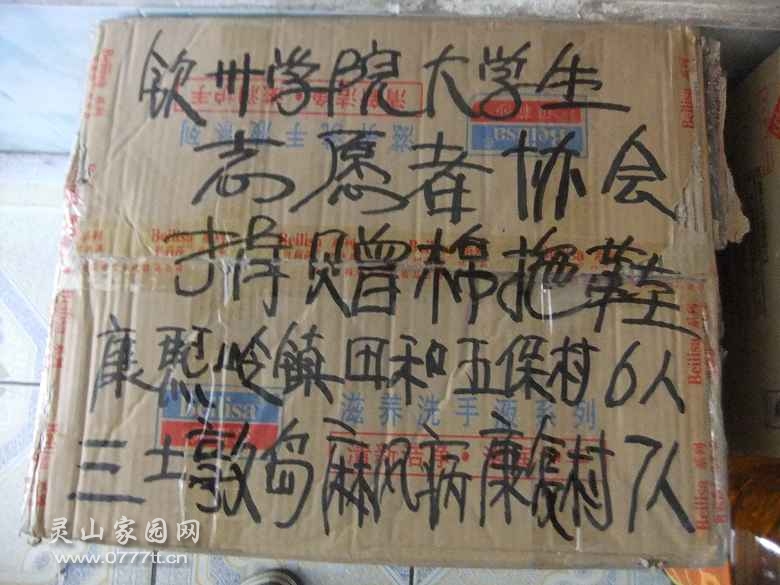 钦州学院大学生
志愿者协会
捐赠棉拖鞋
康熙岭镇田和五保村6人
三土敦岛麻风病康复村7人
Beilisa
滋养洗手液系列
Beilisa
Beilisa
灵山家园网
www.0777tt.cn